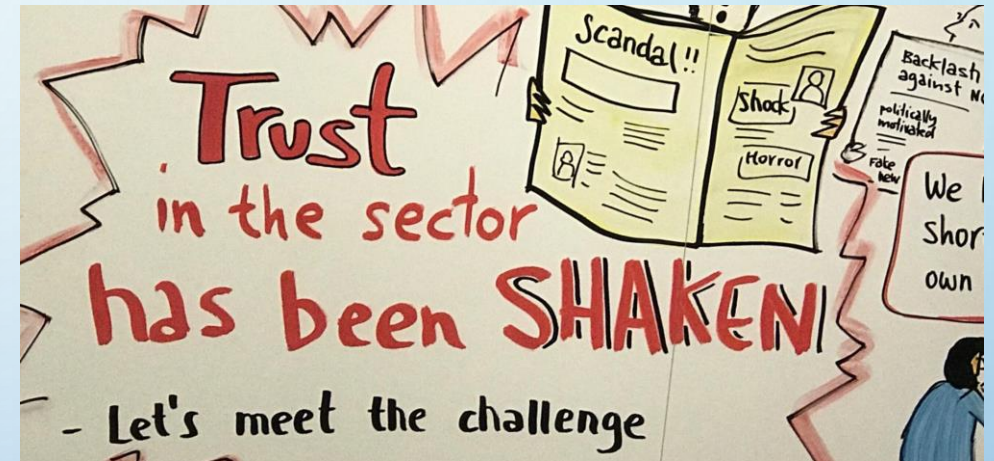 Trust
in the sector
has been SHAKEN
- Let's meet the challenge
Scandal!!
Shock
Horror
Backlash
against
politically
motivated
Fake
new
We
Shor
own